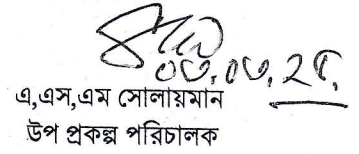 ০৩.০৩.২৪.
এ,এস,এম সোলায়মান
উপ প্রকল্প পরিচালক